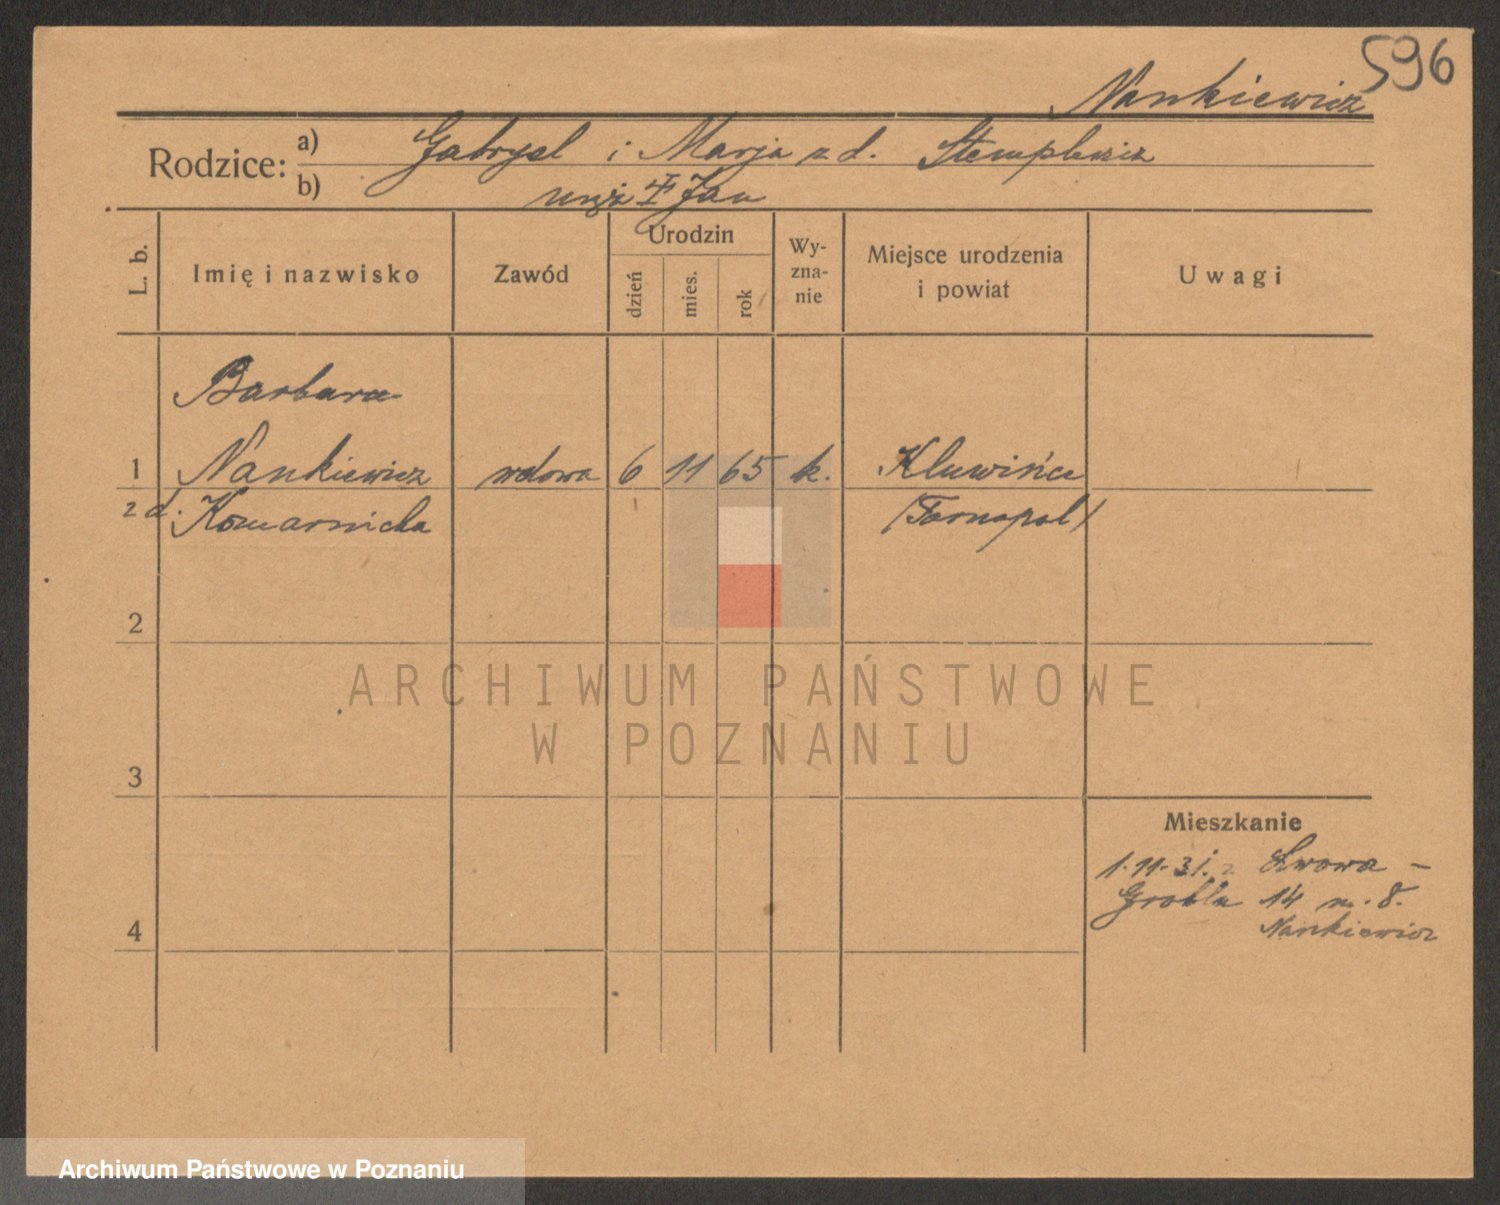 596
Nankiewicz
Rodzice: a) Gabryel i Marja z d. Stemplewicz
b) mąż † Jan
L. b.
Imię i nazwisko
Zawód
Urodzin
dzień
mies.
rok
Wy-
zna-
nie
Miejsce urodzenia
i powiat
Uwagi
Barbara
1 Nankiewicz wdowa 6 11 65 k. Kluwińce
z d. Komarnicka (Tarnopol)
2
3
4
Mieszkanie
1.11.31. z Lwowa –
Grobla 14 m. 8.
Nankiewicz
ARCHIWUM PAŃSTWOWE
W POZNANIU
Archiwum Państwowe w Poznaniu